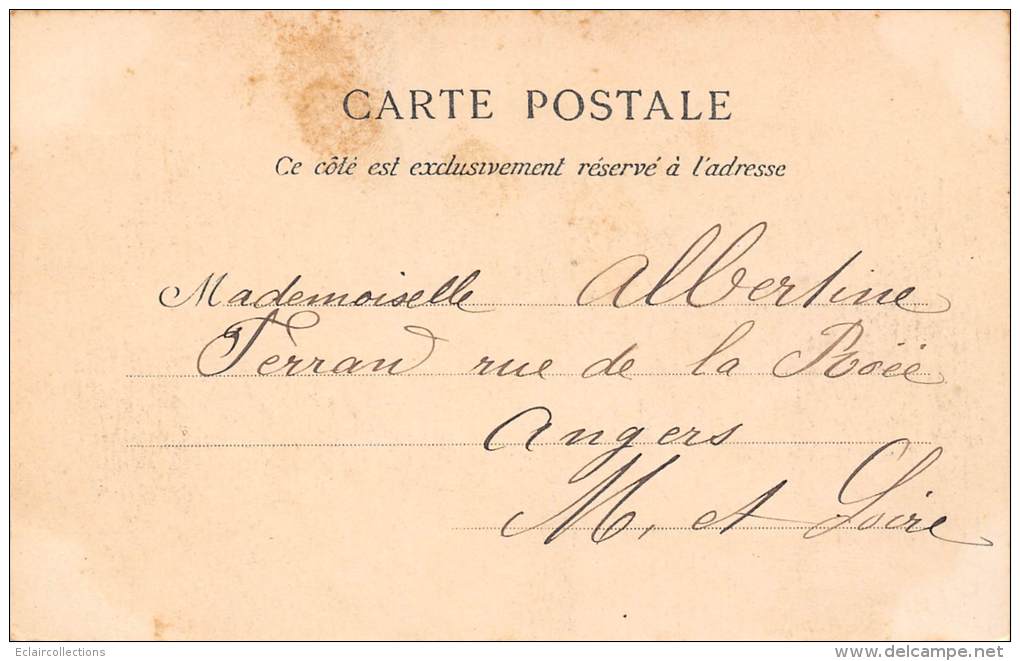 CARTE POSTALE
Ce côté est exclusivement réservé à l'adresse
Mademoiselle Albertine
Ferrand rue de la Roëe
Angers
M. et Loire
Eclaircollections
www.delcampe.net